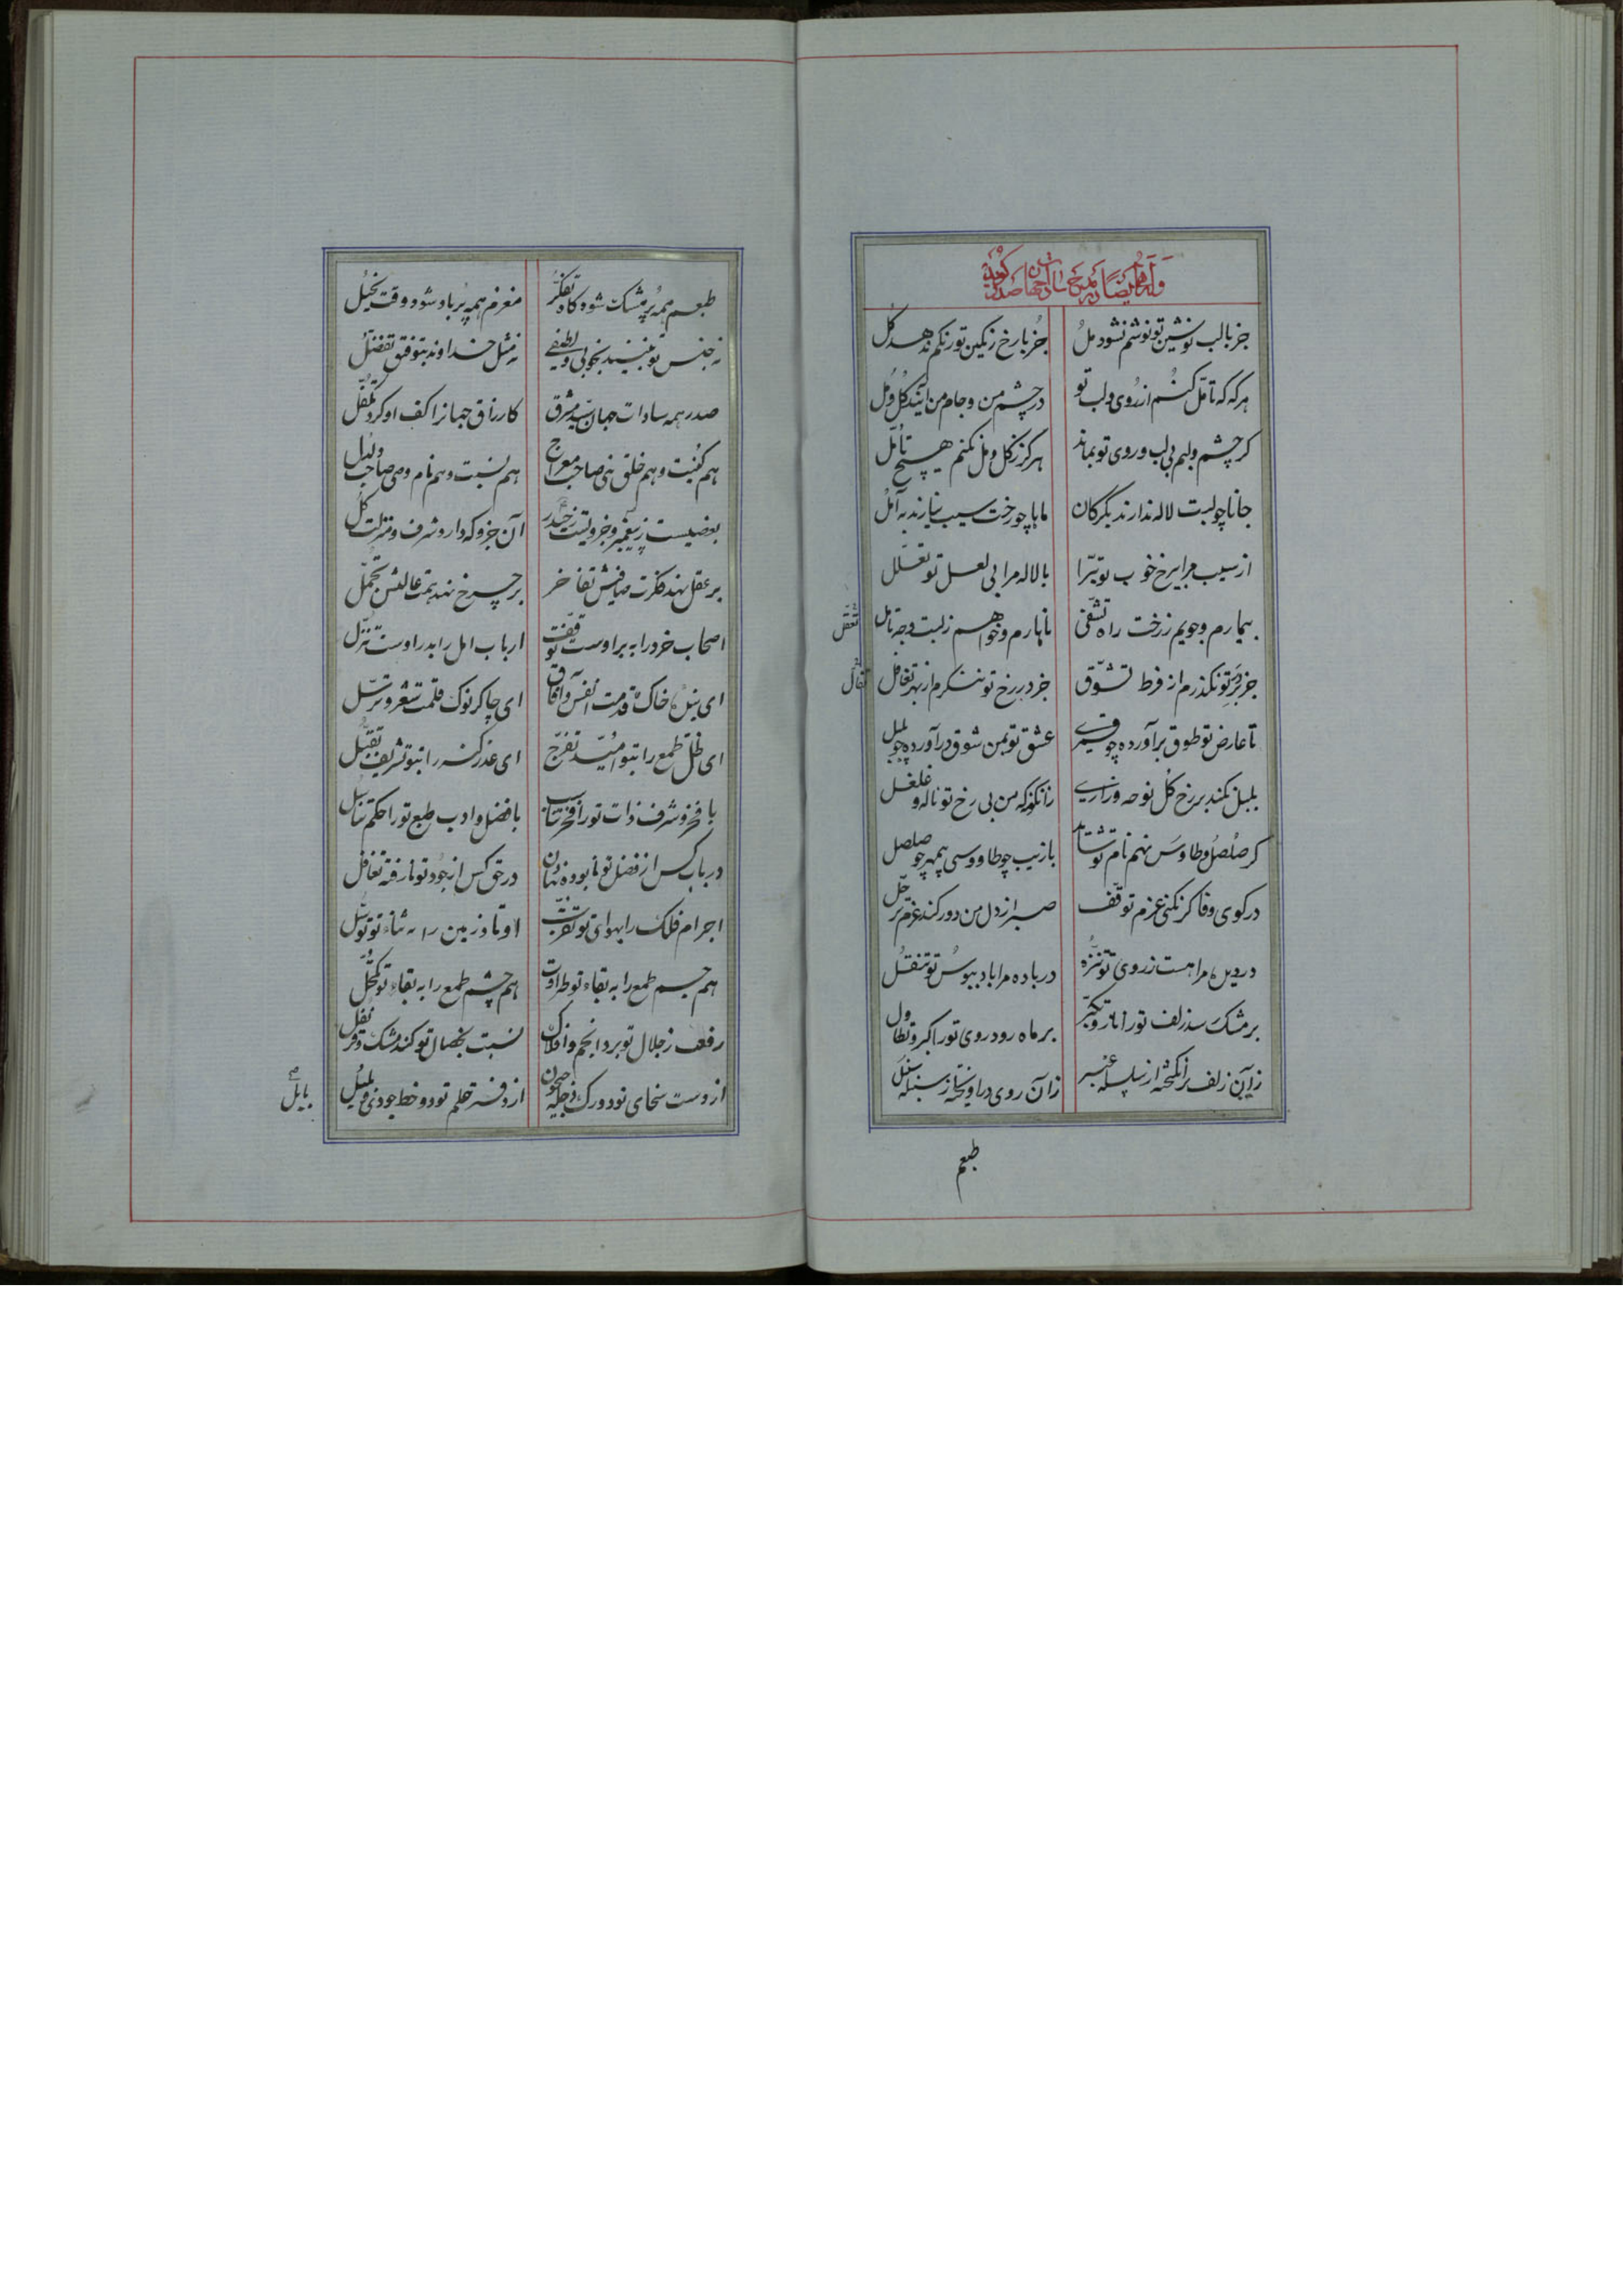 وله ایضا در مدح سادات جهان صدر گوید
جز با لب نوشین تو نوشم نشود مل جز با رخ رنگین تو رنگم ندهد گل
هر که که تأمل کنم از روی و لب تو در چشم من و جام من آیند گل و مل
گر چشم و لبم بی لب و روی تو بماند هرگز ز گل و مل نکنم هیچ تأمل
جانا چو لبت لاله ندارند بگرگان ماها چو رخت سیب نیارند به آمل
از سیب مرا بی رخ خوب تو تبرّا با لاله مرا بی لعل تو تعلّل
بیمارم و جویم ز رخت راه تشفّی ناهارم و خواهم ز لبت وجه تأمل
تنقّل
جز بر در تو نگذرم از فرط تشوّق جز در رخ تو ننگرم از بهر تغافل
تفأل
تا عارض تو طوق برآورده چو قمری عشق تو بمن شوق درآورده چو بلبل
بلبل نکند بر رخ گل نوحه و زاری زانگونه که من بی رخ تو ناله و غلغل
گر صلصل و طاوس نهم نام تو شاید با زیب چو طاووسی بی مهر چو صلصل
در کوی وفا گر نکنی عزم توقّف صبر از دل من دور کند عزم ترحّل
در دیده مرا هست ز روی تو تنزّه در باده مرا باد ببوس تو تنقّل
بر مشک سزد زلف تو را ناز و تکبّر بر ماه رود روی تو را کبر و تطاول
زان زلف برانگیخته از سلسله عنبر زان روی درآویخته از سنبله سنبل
طبعم
طبعم همه پر مشک شود گاه تفکّر مغزم همه پر باد شود وقت تخیّل
نه جنس تو بینند بخوبی و لطیفی نه مثل خداوند بتوفیق تفضّل
صدر همه سادات جهان سید مشرق کارزاق جهانرا کف او کرد تکفّل
هم کنیت و هم خلق نبی صاحب معراج هم نسبت و هم نام وصی صاحب دلدل
بعضیست ز پیغمبر و جزویست ز حیدر آن جزو که دارد شرف و منزلت کل
بر عقل نهد فکرت صافیش تفاخر بر چرخ نهد همت عالیش تجمّل
اصحاب خرد را به بر اوست توقّف ارباب امل را بدر اوست تنزّل
ای بندهٔ خاک قدمت انفس و آفاق ای چاکر نوک قلمت شعر و ترسّل
ای ظل طمع را بتو امید تفرّج ای عذر گنه را بتو تشریف تقبّل
با فخر و شرف ذات تو را فخر تناسب با فضل و ادب طبع تو را حکم تناسل
در باب کس از فضل تو نابوده تهاون در حق کس از جود تو نارفته تغافل
اجرام فلک را بهوای تو تقرّب اوتاد زمین را به ثناء تو توسّل
هم جسم طمع را به بقاء تو طراوت هم چشم طمع را به بقاء تو تکحّل
رفعت ز جلال تو برد انجم و افلاک نسبت بخصال تو کند مشک و قرنفل
از دست سخای تو دو رک دجله و جیحون از دفتر حلم تو دو خط جودی و
بابل